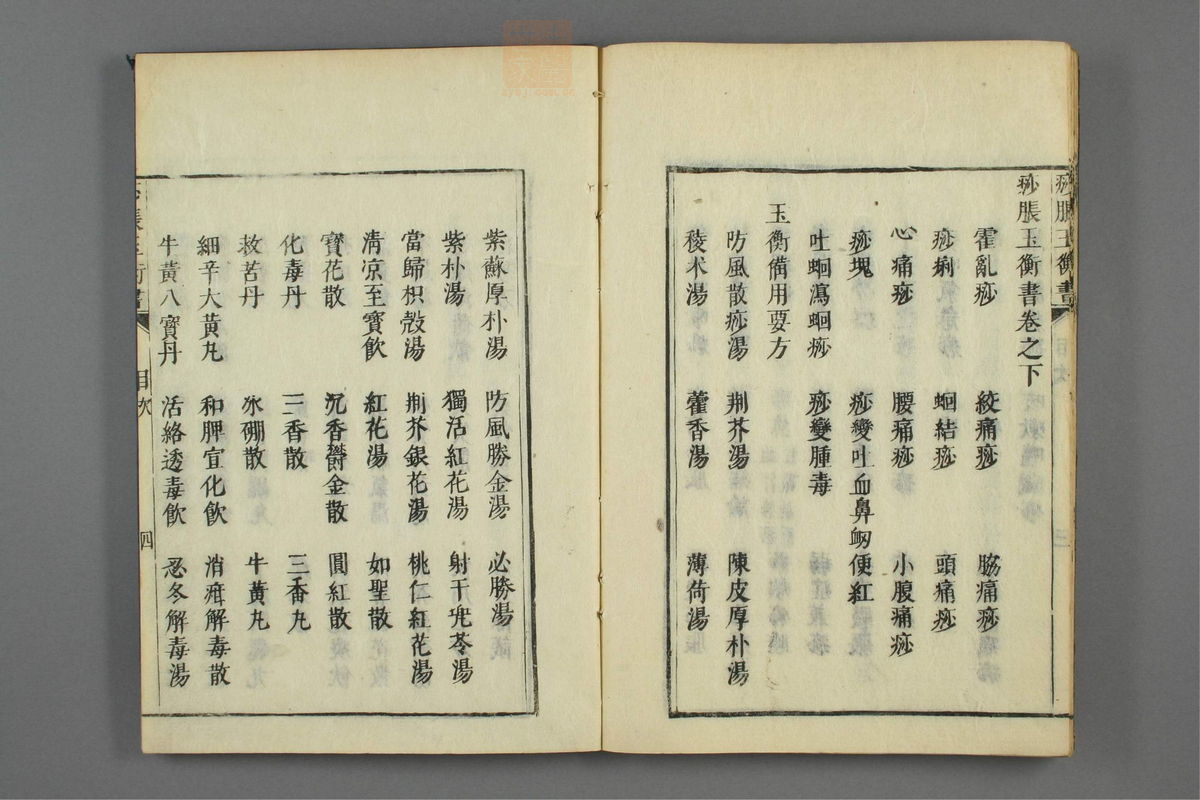 痧脹玉衡書
痧脹玉衡書卷之下
霍亂痧 絞痛痧 脇痛痧
痧痢 蛔結痧 頭痛痧
心痛痧 腰痛痧 小腹痛痧
痧塊 痧變吐血鼻衂便紅
吐蛔瀉蛔痧 痧變腫毒
玉衡備用要方
防風散痧湯 荆芥湯 陳皮厚朴湯
稜术湯 藿香湯 薄荷湯
紫蘇厚朴湯 防風勝金湯 必勝湯
紫朴湯 獨活紅花湯 射干兠苓湯
當歸枳殻湯 荆芥銀花湯 桃仁紅花湯
清凉至寳飲 紅花湯 如聖散
寳花散 沉香欝金散 圓紅散
化毒丹 三香散 三香丸
救苦丹 氷硼散 牛黃丸
細辛大黃丸 和脾宣化飲 消疳解毒散
牛黃八寳丹 活絡透毒飲 忍冬解毒湯
目次 四